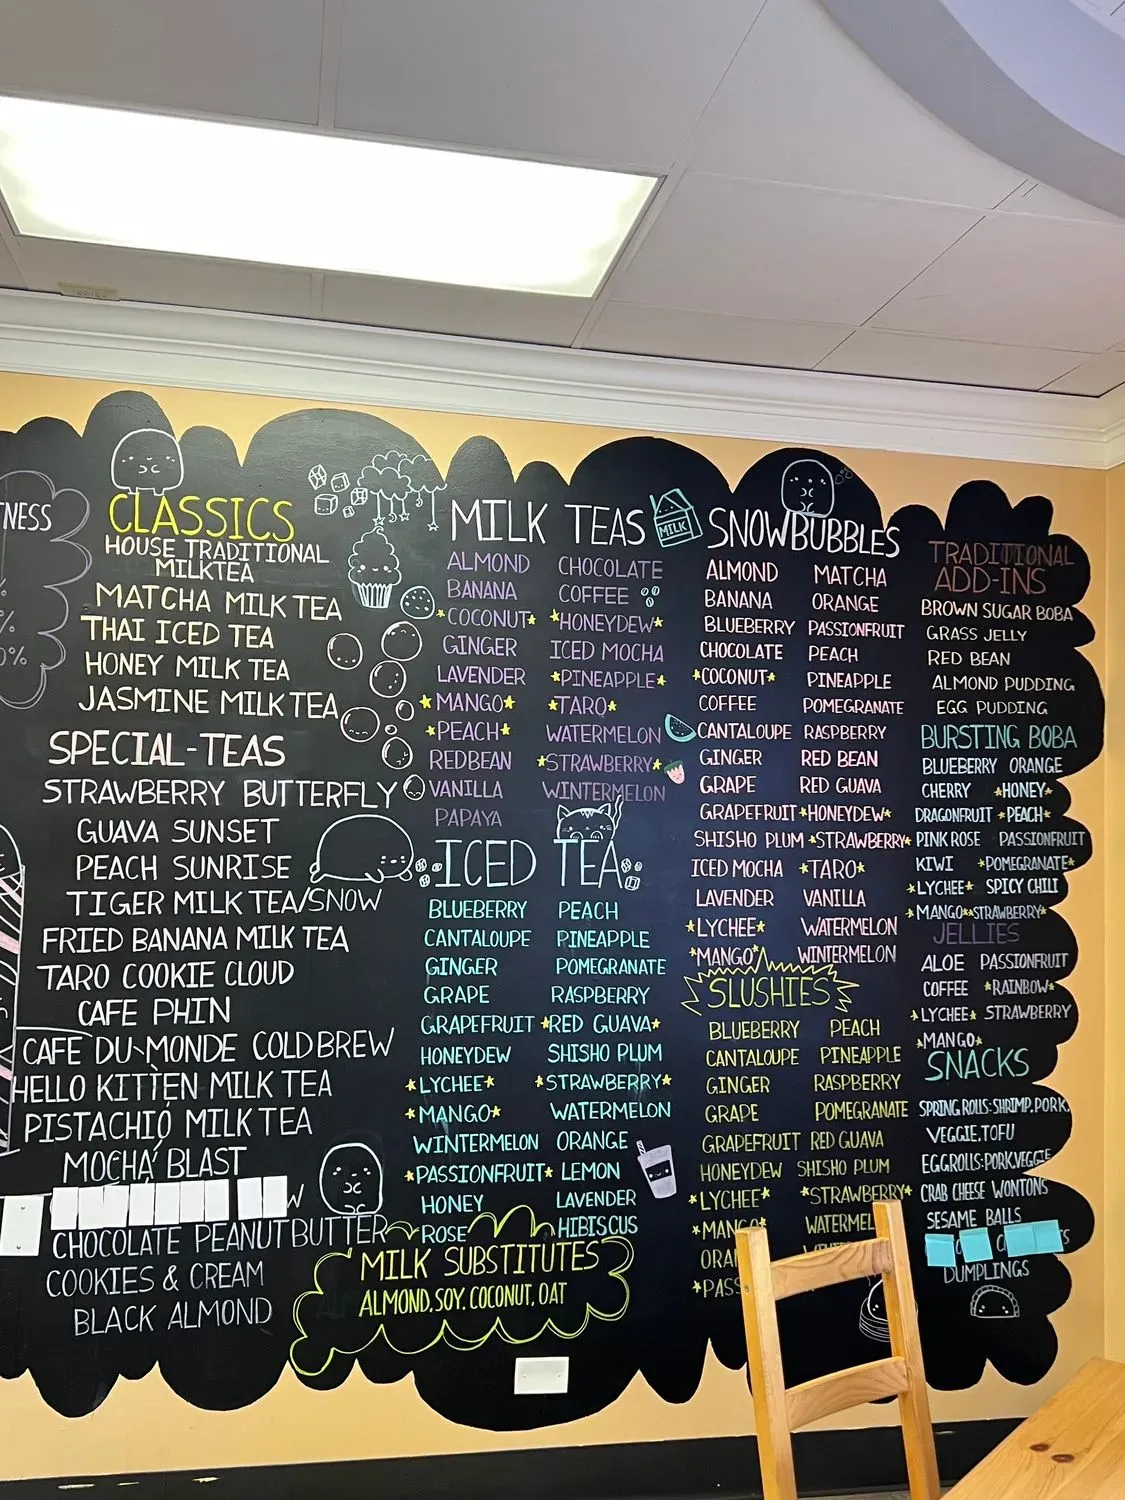 TNESS
%
0%
CLASSICS
HOUSE TRADITIONAL
MILKTEA
MATCHA MILK TEA
THAI ICED TEA
HONEY MILK TEA
JASMINE MILK TEA
SPECIAL-TEAS
STRAWBERRY BUTTERFLY
GUAVA SUNSET
PEACH SUNRISE
TIGER MILK TEA/SNOW
FRIED BANANA MILK TEA
TARO COOKIE CLOUD
CAFE PHIN
CAFE DU MONDE COLD BREW
HELLO KITTEN MILK TEA
PISTACHIO MILK TEA
MOCHA BLAST
W
CHOCOLATE PEANUT BUTTER
COOKIES & CREAM
BLACK ALMOND
MILK TEAS
MILK
ALMOND CHOCOLATE
BANANA COFFEE
*COCONUT* *HONEYDEW*
GINGER ICED MOCHA
LAVENDER *PINEAPPLE*
*MANGO* *TARO*
*PEACH* WATERMELON
REDBEAN *STRAWBERRY*
VANILLA WINTERMELON
PAPAYA
ICED TEA
BLUEBERRY PEACH
CANTALOUPE PINEAPPLE
GINGER POMEGRANATE
GRAPE RASPBERRY
GRAPEFRUIT *RED GUAVA*
HONEYDEW SHISHO PLUM
*LYCHEE* *STRAWBERRY*
*MANGO* WATERMELON
WINTERMELON ORANGE
*PASSIONFRUIT* LEMON
HONEY LAVENDER
ROSE HIBISCUS
MILK SUBSTITUTES
ALMOND, SOY, COCONUT, OAT
SNOWBUBBLES
ALMOND MATCHA
BANANA ORANGE
BLUEBERRY PASSIONFRUIT
CHOCOLATE PEACH
*COCONUT* PINEAPPLE
COFFEE POMEGRANATE
CANTALOUPE RASPBERRY
GINGER RED BEAN
GRAPE RED GUAVA
GRAPEFRUIT *HONEYDEW*
SHISHO PLUM *STRAWBERRY*
ICED MOCHA *TARO*
LAVENDER VANILLA
*LYCHEE* WATERMELON
*MANGO* WINTERMELON
SLUSHIES
BLUEBERRY PEACH
CANTALOUPE PINEAPPLE
GINGER RASPBERRY
GRAPE POMEGRANATE
GRAPEFRUIT RED GUAVA
HONEYDEW SHISHO PLUM
*LYCHEE* *STRAWBERRY*
*MANGO WATERMEL
ORA
*PAS
TRADITIONAL
ADD-INS
BROWN SUGAR BOBA
GRASS JELLY
RED BEAN
ALMOND PUDDING
EGG PUDDING
BURSTING BOBA
BLUEBERRY ORANGE
CHERRY *HONEY*
DRAGONFRUIT *PEACH*
PINK ROSE PASSIONFRUIT
KIWI *POMEGRANATE*
*LYCHEE* SPICY CHILI
*MANGO* *STRAWBERRY*
JELLIES
ALOE PASSIONFRUIT
COFFEE *RAINBOW*
*LYCHEE* STRAWBERRY
*MANGO*
SNACKS
SPRING ROLLS: SHRIMP, PORK,
VEGGIE, TOFU
EGGROLLS: PORK, VEGGIE
CRAB CHEESE WONTONS
SESAME BALLS
DUMPLINGS